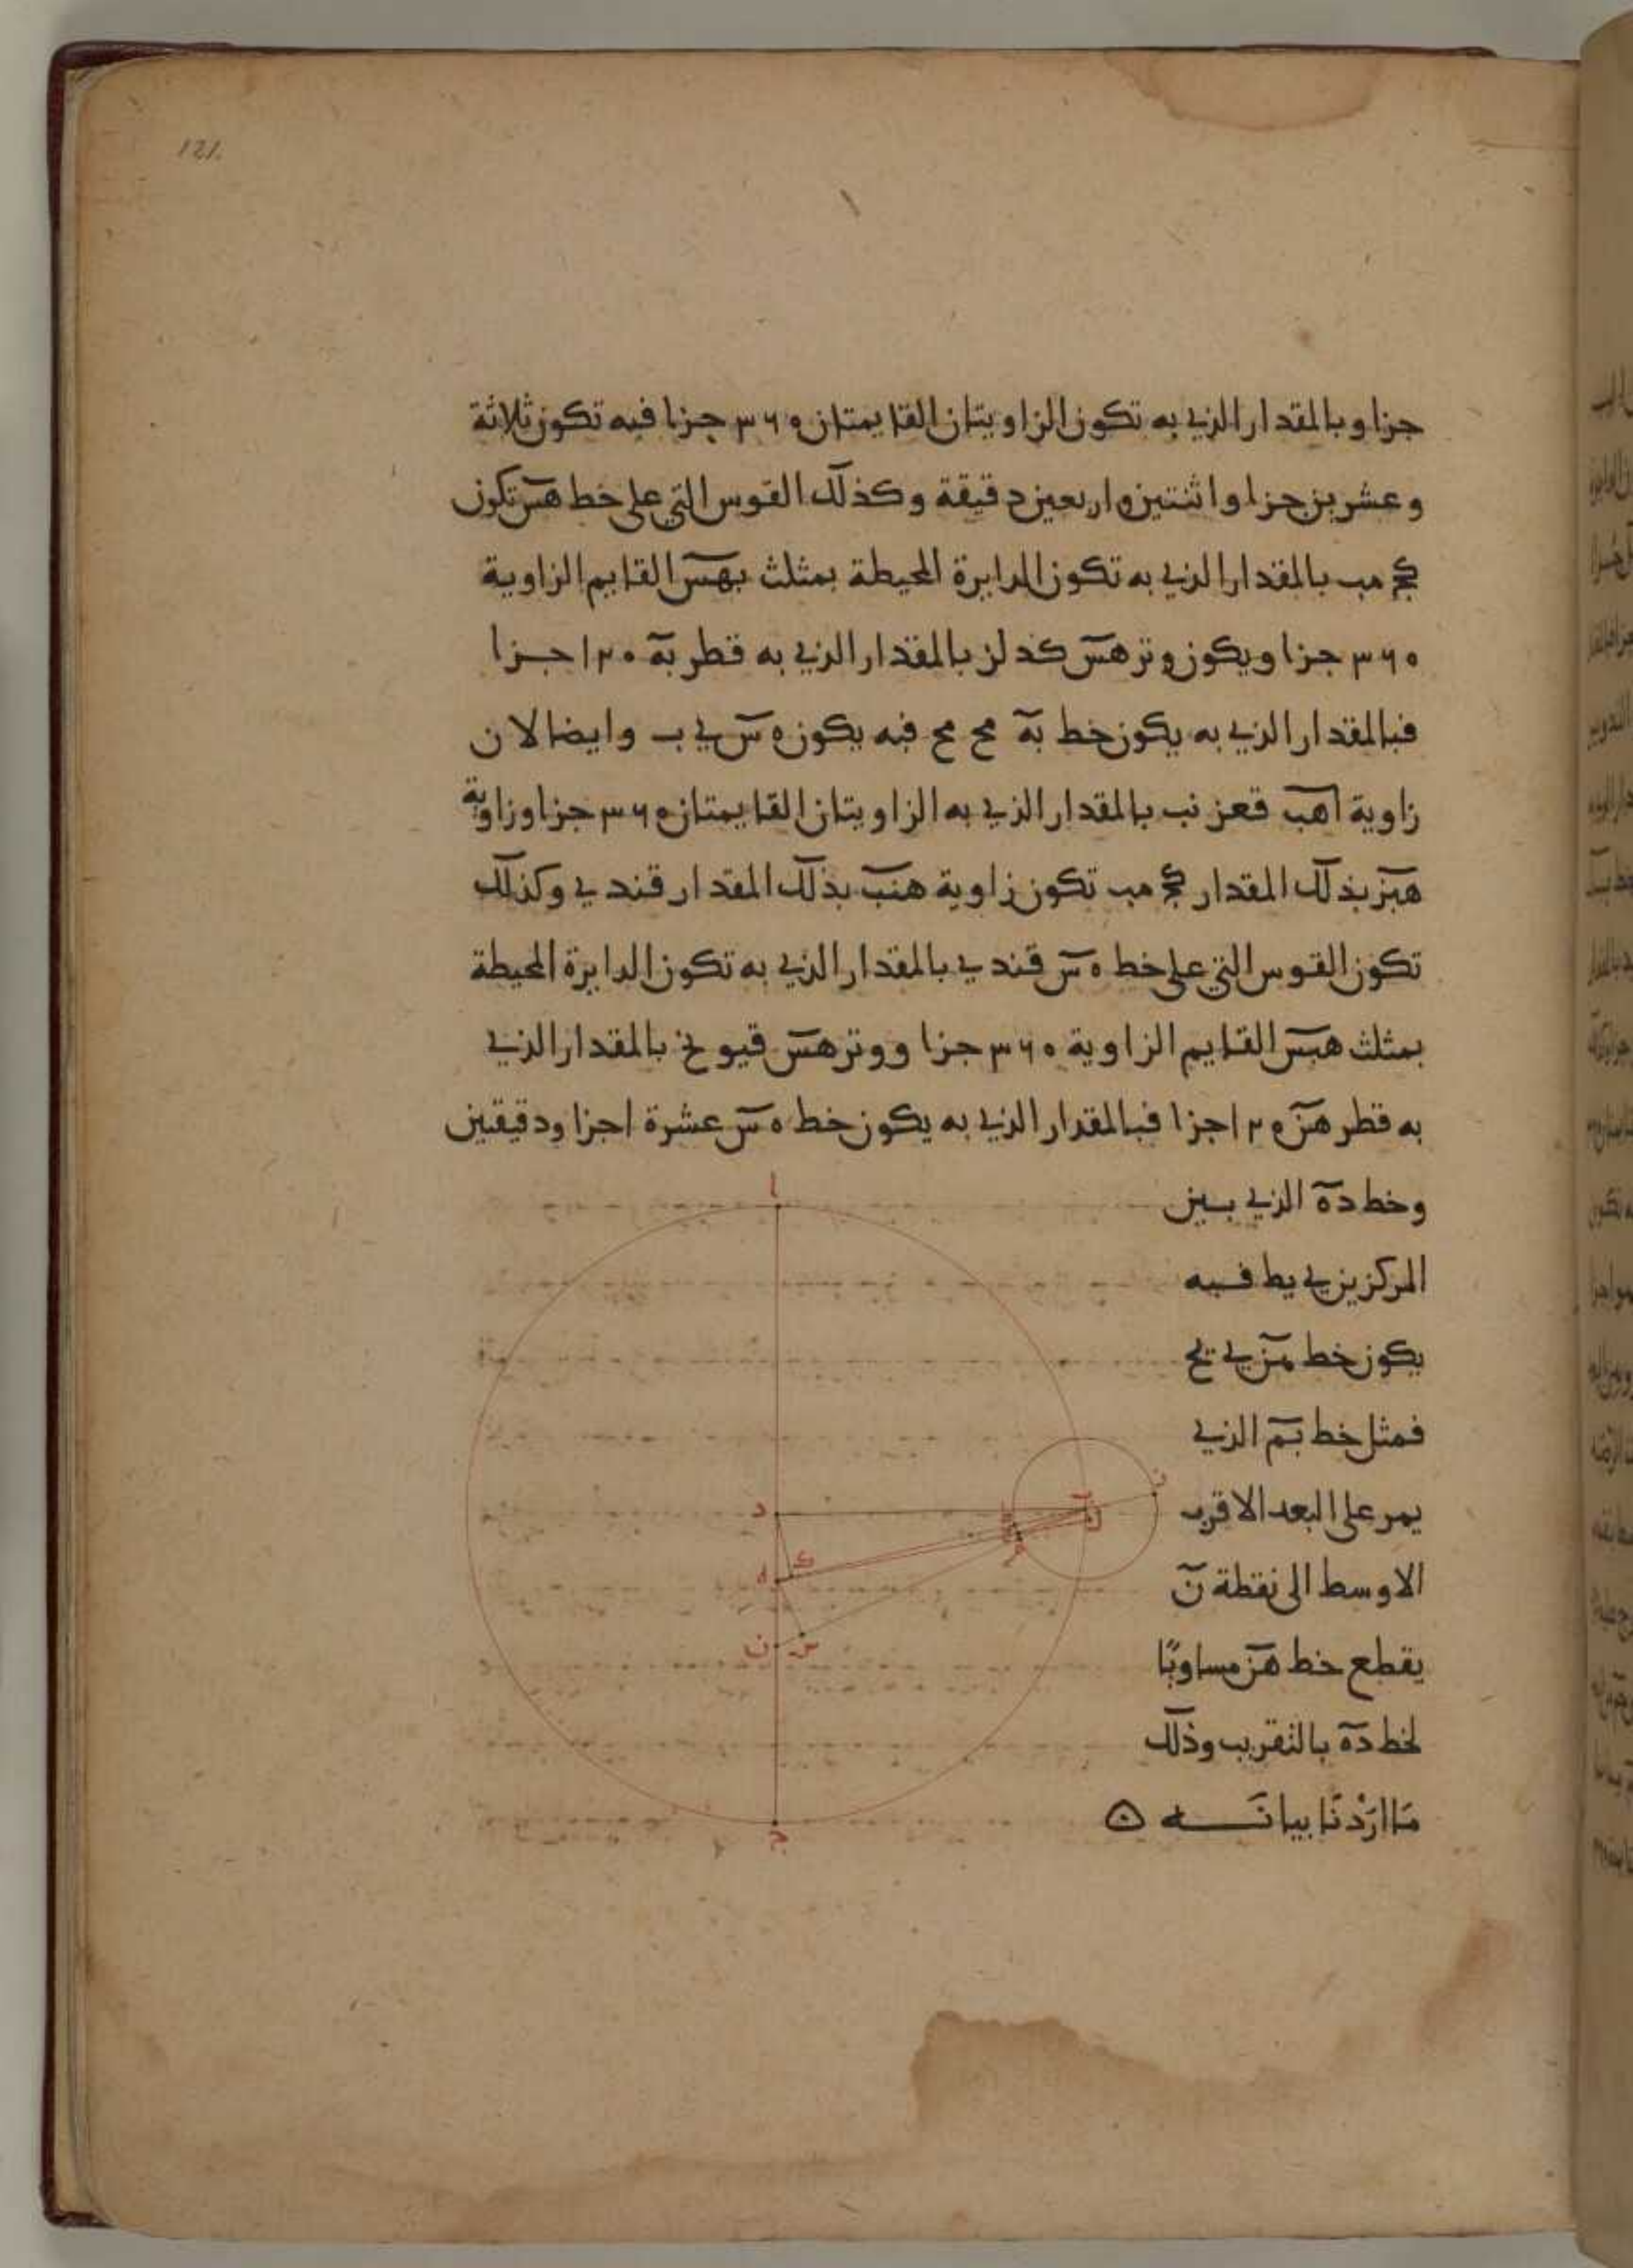 121.
جزا وبالمقدار الذي به تكون الزاويتان القايمتان ٣٦٠ جزا فبه تكون ثلاثة
وعشرين جزا واثنتين واربعين دقيقة وكذلك القوس التي على خط هس تكون
كج مب بالمقدار الذي به تكون الدايرة المحيطة بمثلث بهس القايم الزاوية
٣٦٠ جزا ويكون وتر هس كد لز بالمقدار الذي به قطر به ١٢٠ جزا
فبالمقدار الذي به يكون خط به مح مح فبه يكون ه س ي ب وايضا لان
زاوية اهب قعز نب بالمقدار الذي به الزاويتان القايمتان ٣٦٠ جزا وزاوية
هبز بذلك المقدار كج مب تكون زاوية هنب بذلك المقدار قند ي وكذلك
تكون القوس التي على خط ه س قند ي بالمقدار الذي به تكون الدايرة المحيطة
بمثلث هبس القايم الزاوية ٣٦٠ جزا ووتر هس قيو نح بالمقدار الذي
به قطر هن ١٢٠ جزا فبالمقدار الذي به يكون خط ه س عشرة اجزا ودقيقتين
وخط ده الذي بين
المركزين ي يط فبه
يكون خط هن ي يح
فمثل خط بم الذي
يمر على البعد الاقرب
الاوسط الى نقطة ن
يقطع خط هن مساويًا
لخط ده بالتقريب وذلك
مَا ارَدْنَا بيانَه
ا
د
ز
ه
ك
ن
س
ج